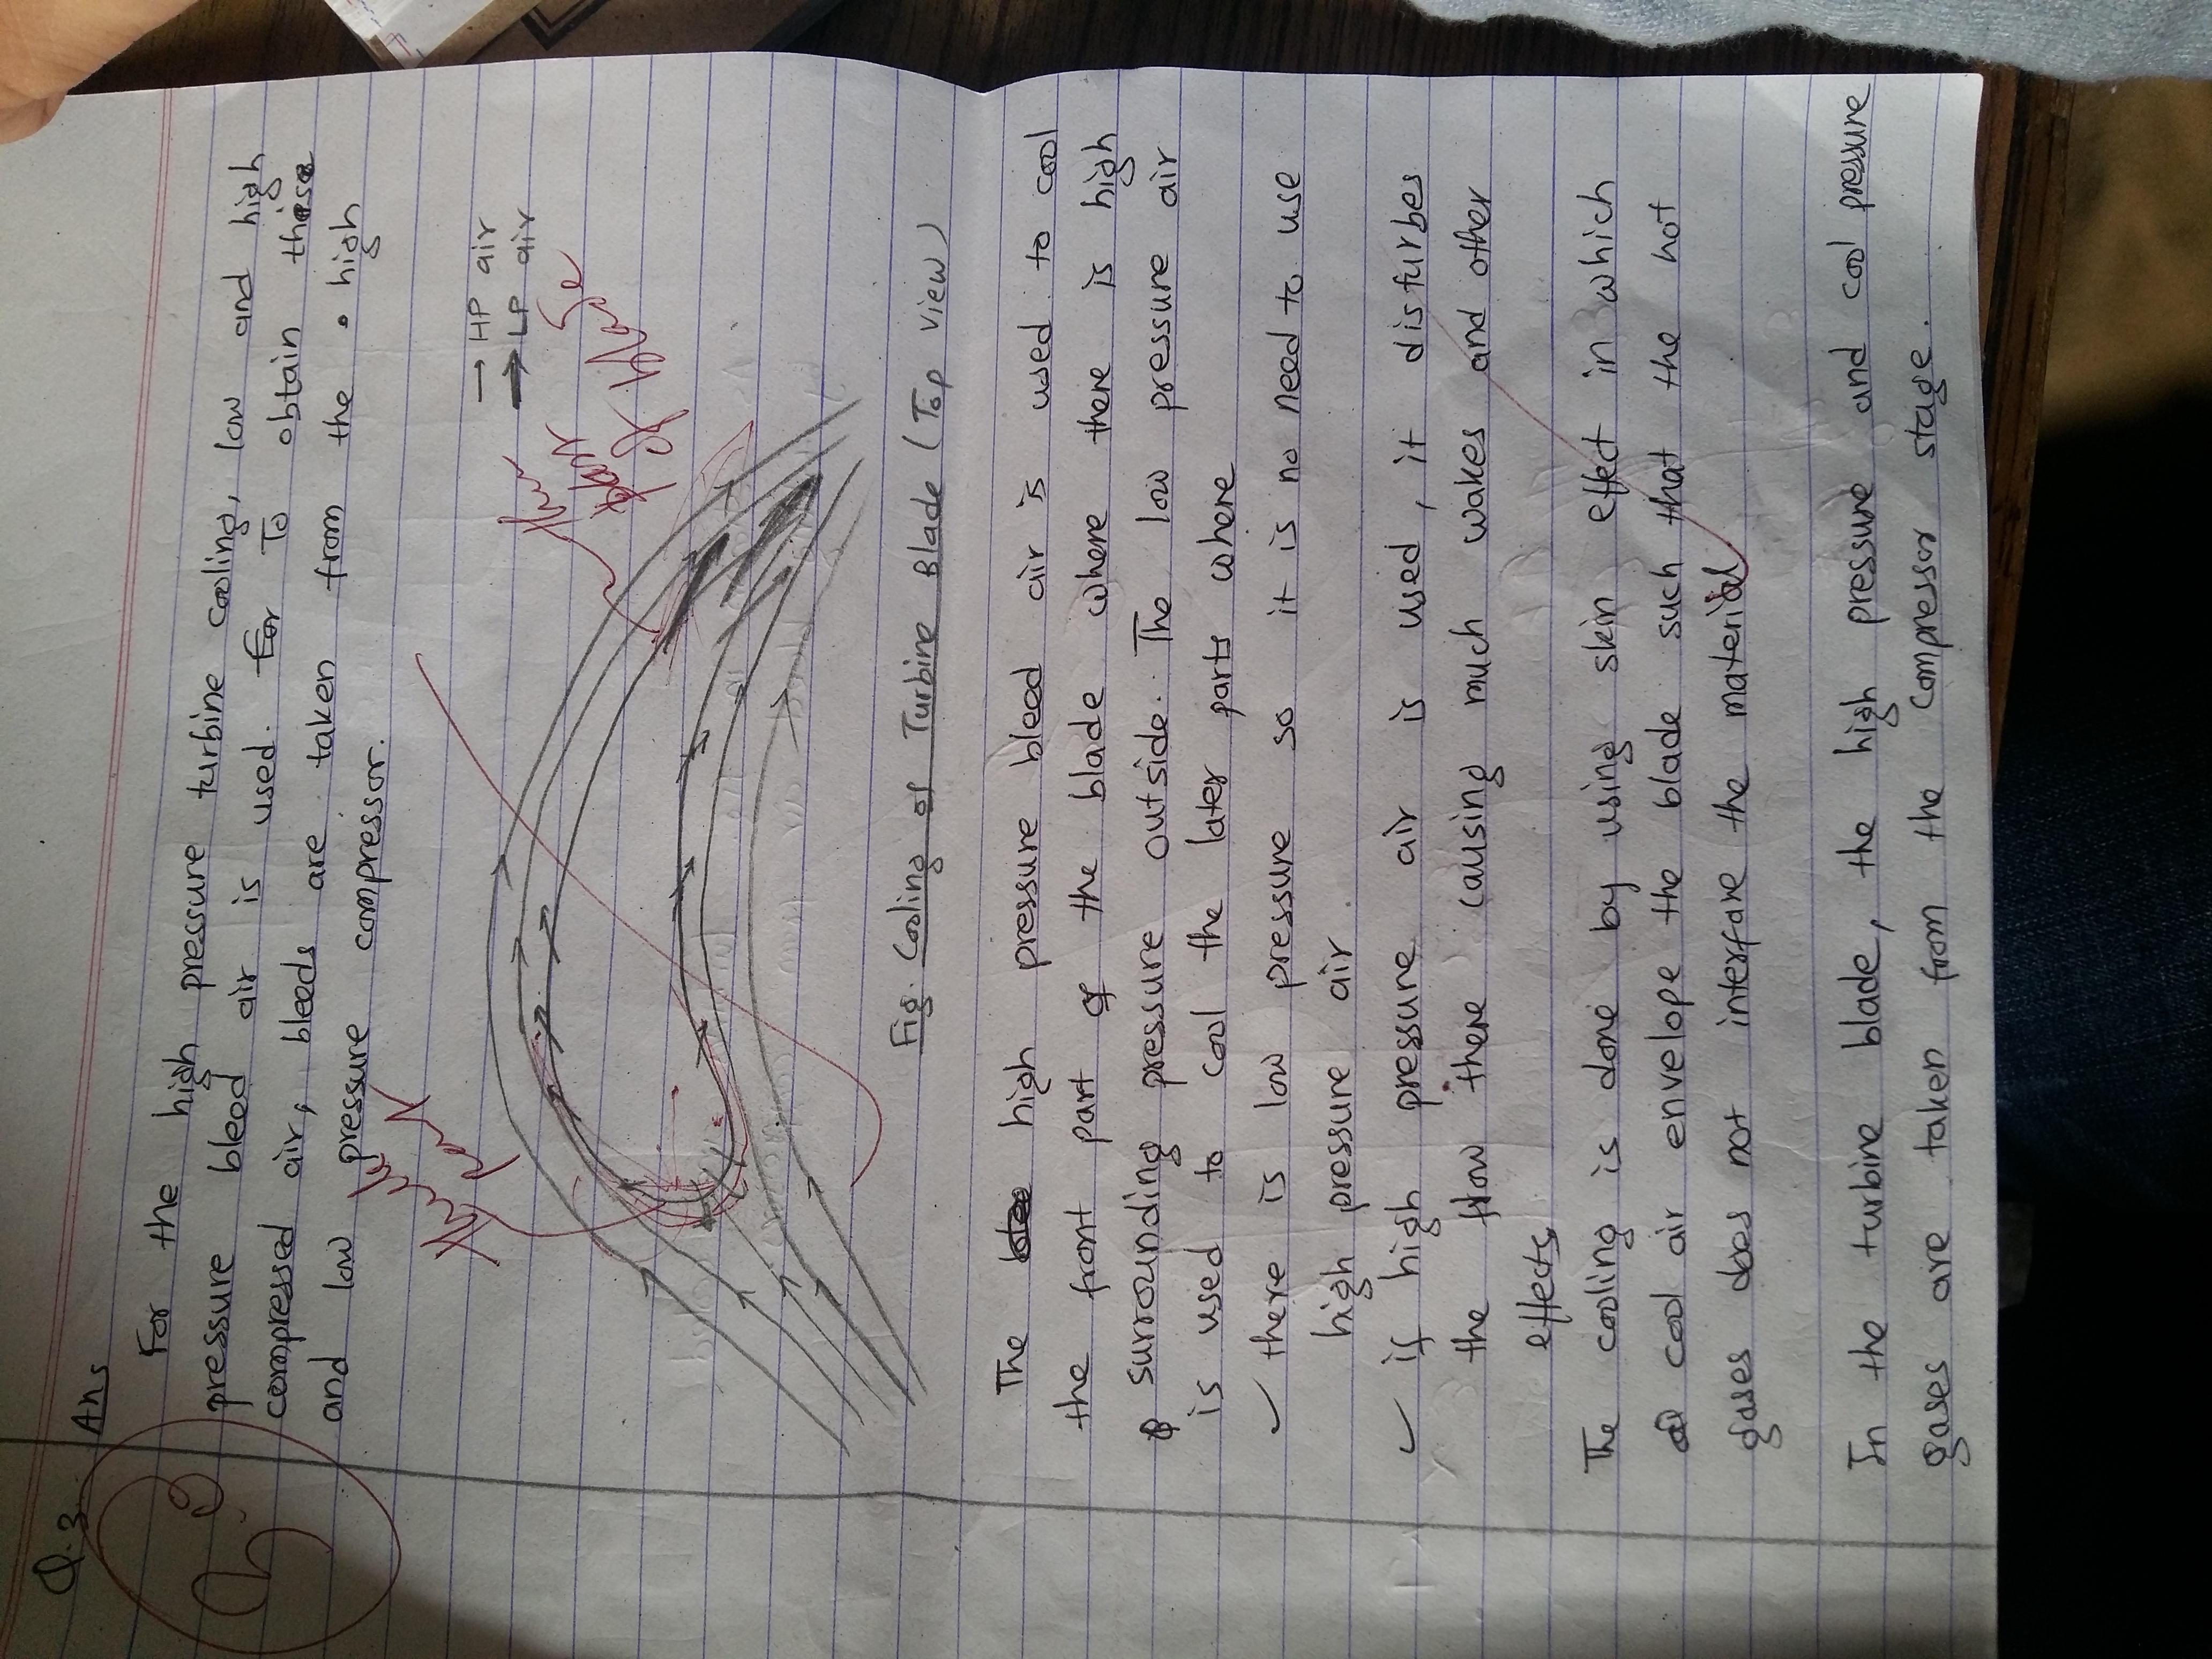 Q.3.
Ans
For the high pressure turbine cooling, low and high
pressure bleed air is used. For To obtain these
compressed air, bleeds are taken from the high
and low pressure compressor.
thick
part
→ HP air
→ LP air
thin
part
of blade
Fig. Cooling of Turbine Blade (Top View)
The high pressure bleed air is used to cool
the front part of the blade where there is high
surrounding pressure outside. The low pressure air
is used to cool the later parts where
✓ there is low pressure so it is no need to use
high pressure air.
✓ if high pressure air is used, it disturbes
the flow there causing much wakes and other
effects
The cooling is done by using skin effect in which
cool air envelope the blade such that the hot
gases does not interfare the material
In the turbine blade, the high pressure and cool pressure
gases are taken from the compressor stage.